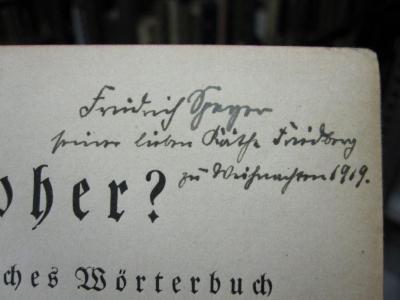 Friedrich Speyer
seiner lieben Käthe Friedberg
zu Weihnachten 1919.
oher?
ches Wörterbuch